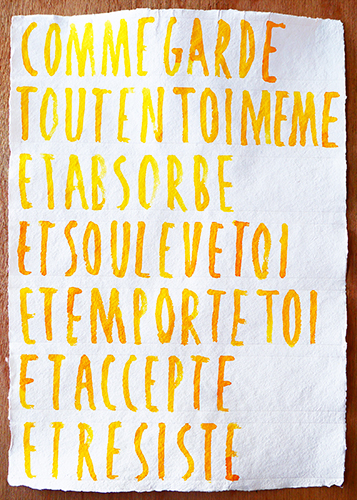 COMME GARDE
TOUT EN TOI MEME
ET ABSORBE
ET SOULEVE TOI
ET EMPORTE TOI
ET ACCEPTE
ET RESISTE